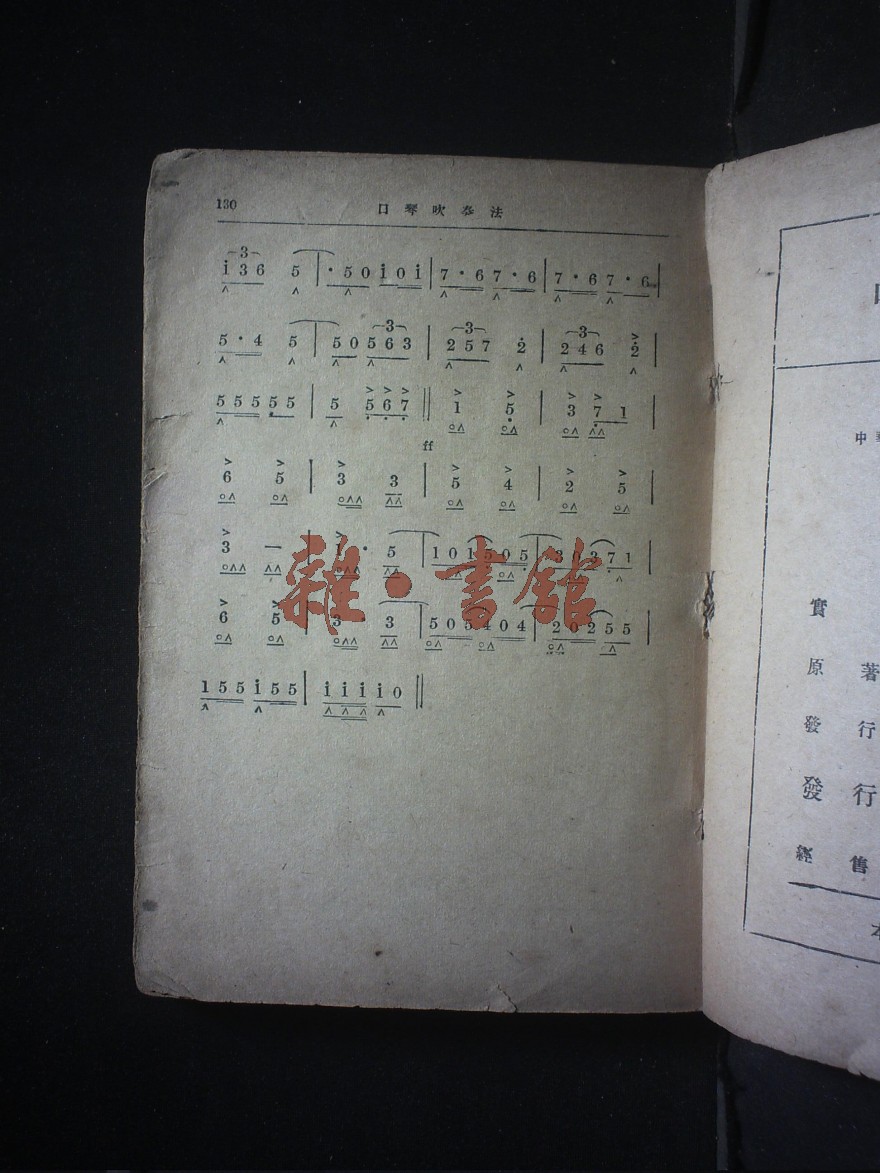 130 口琴吹奏法
3
i 3 6 5 | · 5 0 i 0 i | 7 · 6 7 · 6 | 7 · 6 7 · 6 |
3 3 3
5 · 4 5 | 5 0 5 6 3 | 2 5 7 2̇ | 2 4 6 2̇ |
> > > > > > >
5 5 5 5 5 | 5 5̣ 6̣ 7̣ ‖ 1 5̣ | 3 7̣ 1 |
ff
6 5 | 3 3 | 5 4 | 2 5 |
3 — | 1 · 5 | 1 0 1 5 0 5 | 3 0 3 7̣ 1 |
6 5 | 3 3 | 5 0 5 4 0 4 | 2 0 2 5 5 |
1 5 5 i 5 5 | i i i i 0 ‖
雜·書館
中
實
原著
發行
發行
經售